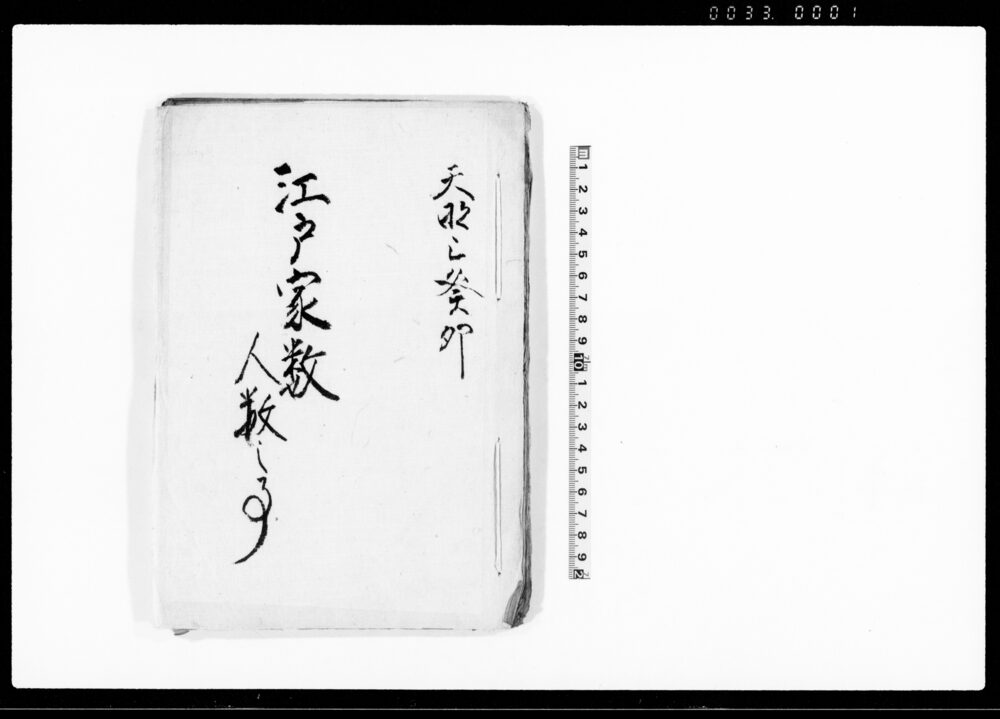 0033.0001
天明三癸卯
江戸家数
人数之事
1 2 3 4 5 6 7 8 9 10 1 2 3 4 5 6 7 8 9 2